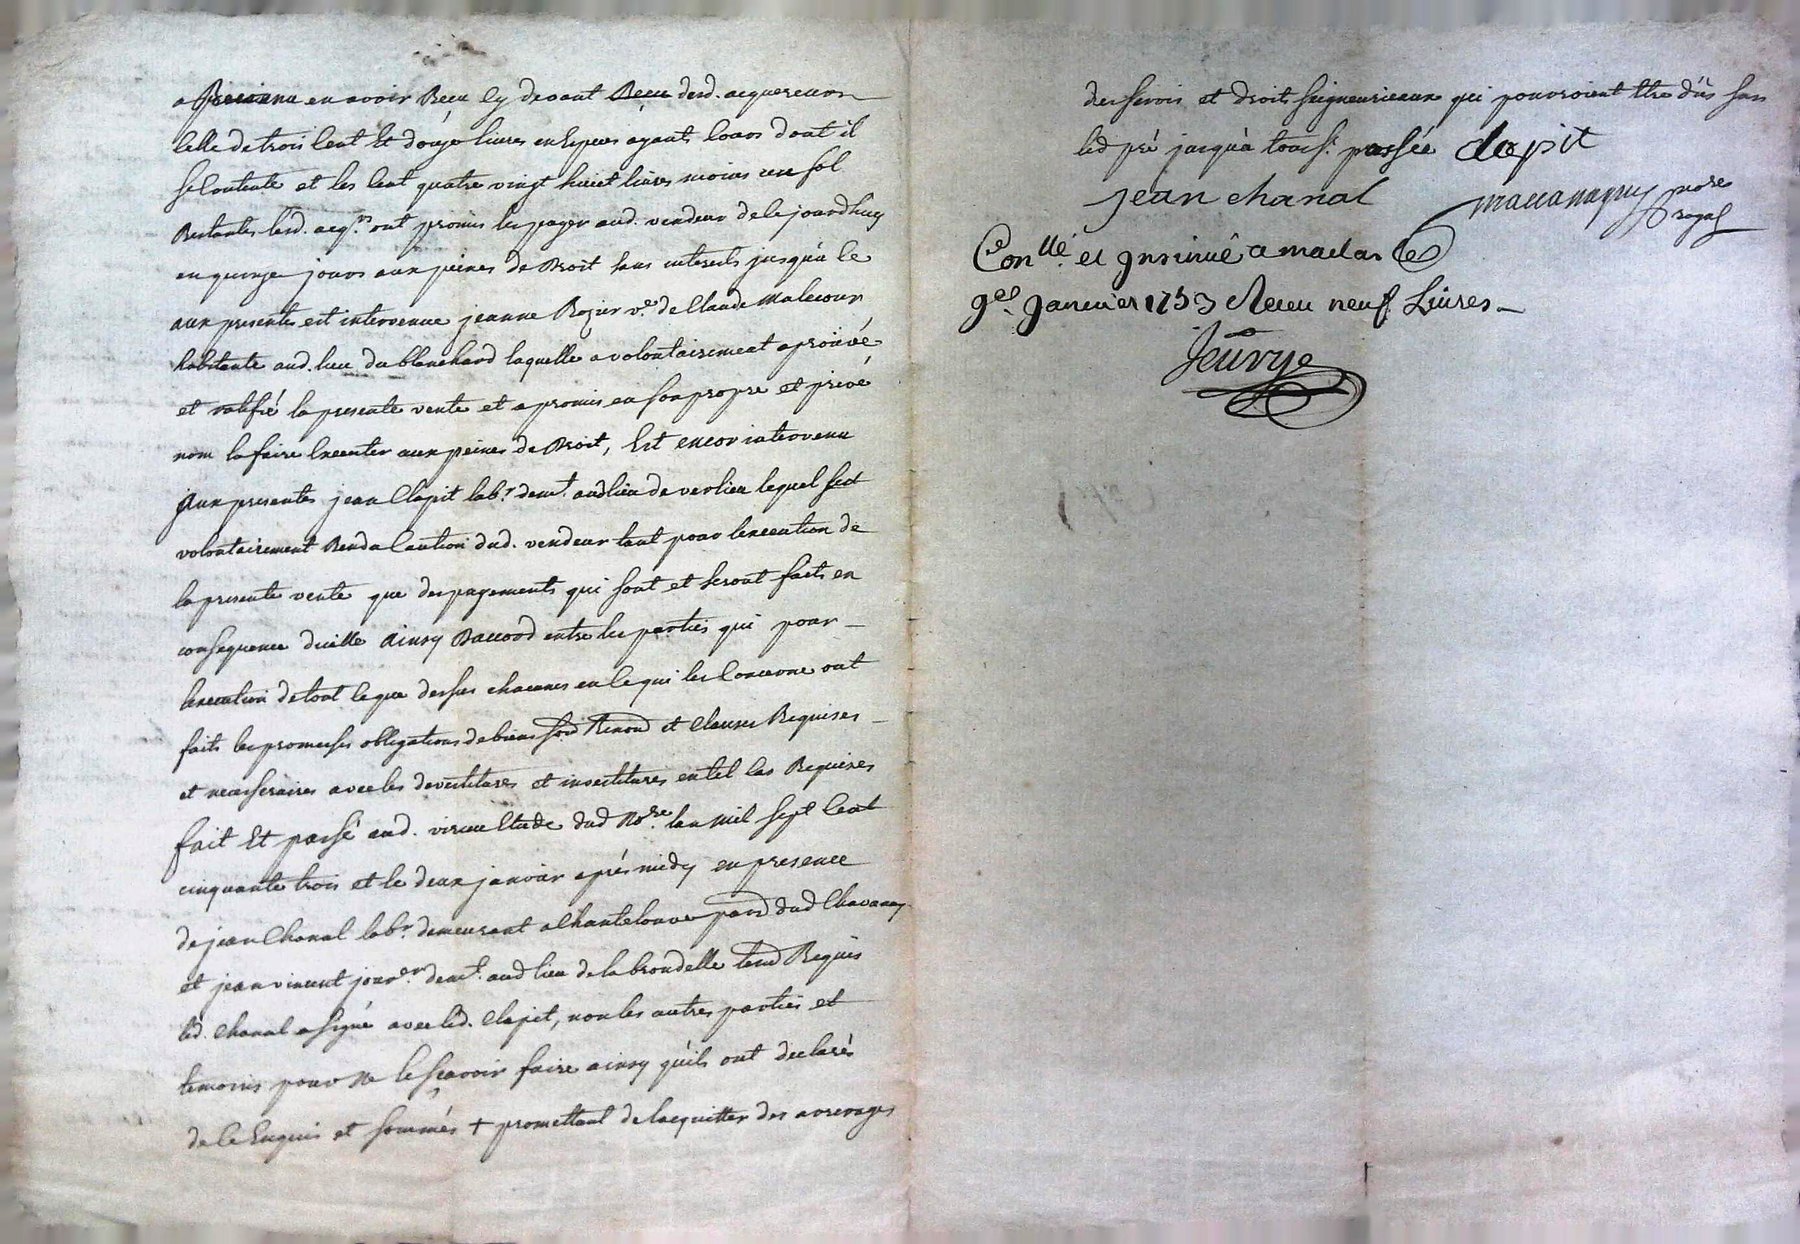 a en avoir Receu cy devant Receu desd. acquereurs
celle de trois Cent Et douze livres en Especes ayants Cours dont il
se Contente et les Cent quatre vingt huict livres moins un sol
Restantes lesd. acqrs ont promis les payer aud. vendeur de ce jourdhuy
en quinze jours aux peines de Droit sans interests jusqu'à ce
aux presentes est intervenue jeanne Rozier ve. de Claude Malecour
habitante aud. lieu du blanchard laquelle a volontairement aprouvé
et ratifié la presente vente et a promis en son propre et privé
nom la faire Executer aux peines de Droit, Est encor intervenu
aux presentes jean Clapit labr. demt. aud lieu de verlieu lequel sest
volontairement Rendu Caution dud. vendeur tant pour lexecution de
la presente vente que des payements qui sont et seront faits en
consequence dicelle ainsy Daccord entre les parties qui pour
lexecution de tout ce que dessus chacunes en ce qui les Concerne ont
faits les promesses obligations de biens Renond et Clauses Requises
et necesseraires avec les devestitures et investitures en tel Cas Requises
fait Et passé aud. virieu Etude dud Nore. lan mil sept Cent
cinquante trois et le deux janvier après midy en presence
de jean Chanal labr. demeurant a Chantelouve dud Chavanay
et jean vincent jourer demt. aud lieu de la brondelle Requis
led. Chanal a signé avec led. Clapit, non les autres parties et
temoins pour ne le sçavoir faire ainsy quils ont declarés
de ce Enquis et sommés + promettant de lacquitter des arrerages
des servis et droits seigneuriaux qui pouvroient etre dûs sur
led pré jusqu'à touss.t passée clapit
jean chanal
nore royal
Conllé et Insinué a maclas le
9e. Janvier 1753 Receu neuf Livres
Jeuvye